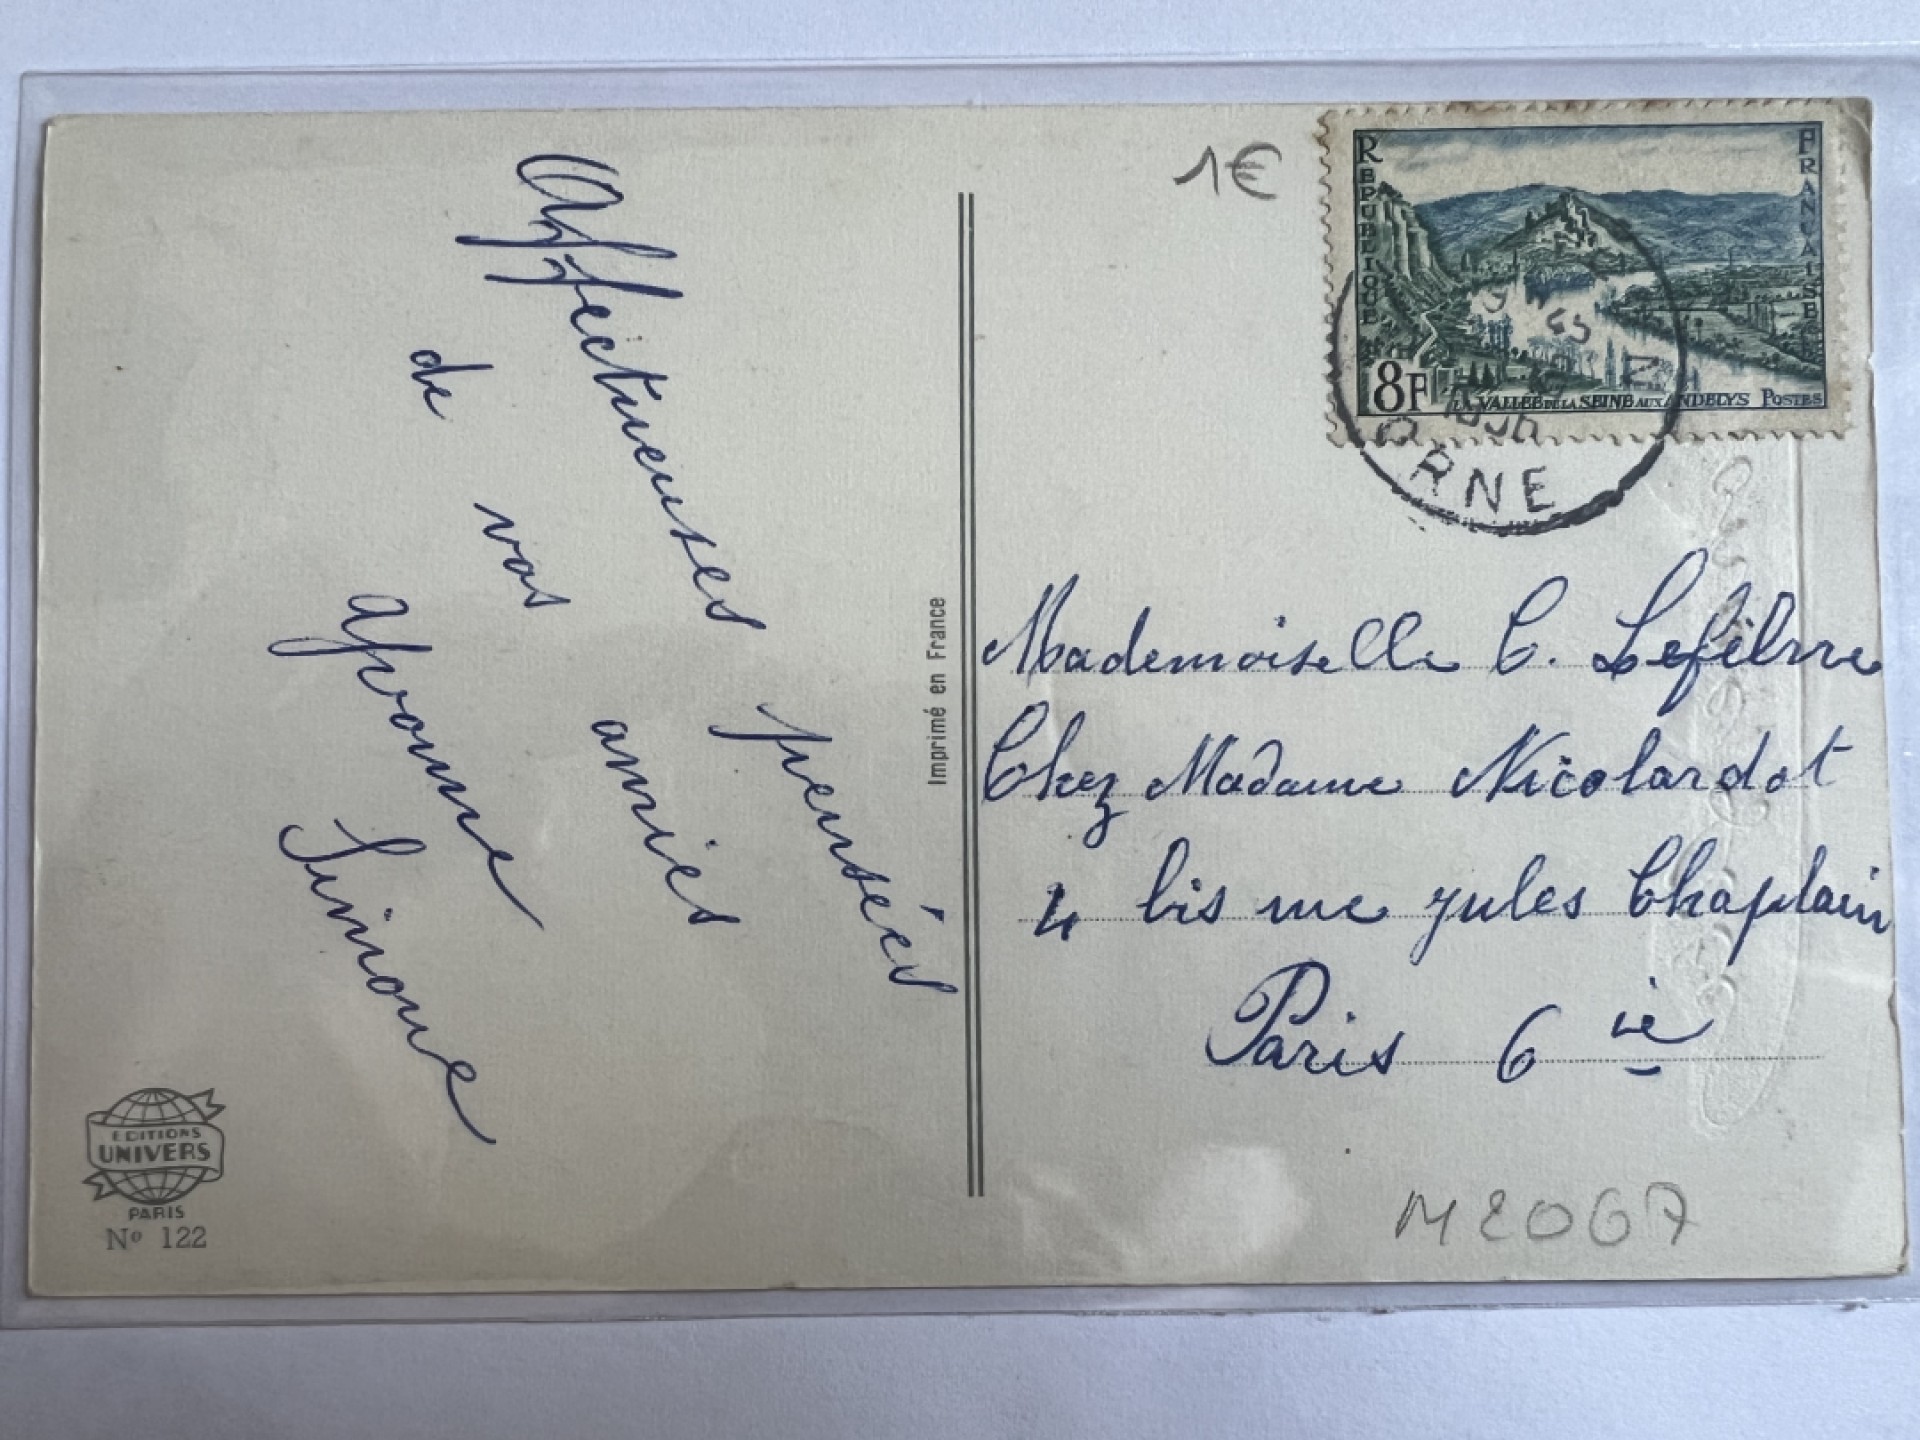 Affectueuses pensées
de vos amies
Yvonne
Simone
EDITIONS
UNIVERS
PARIS
Nº 122
Imprimé en France
1€
REPUBLIQUE FRANÇAISE
8F
LA VALLEE DE LA SEINE AUX ANDELYS POSTES
ORNE
Mademoiselle C. Lefèbvre
Chez Madame Nicolardot
4 bis rue Jules Chaplain
Paris 6 ie
M2067